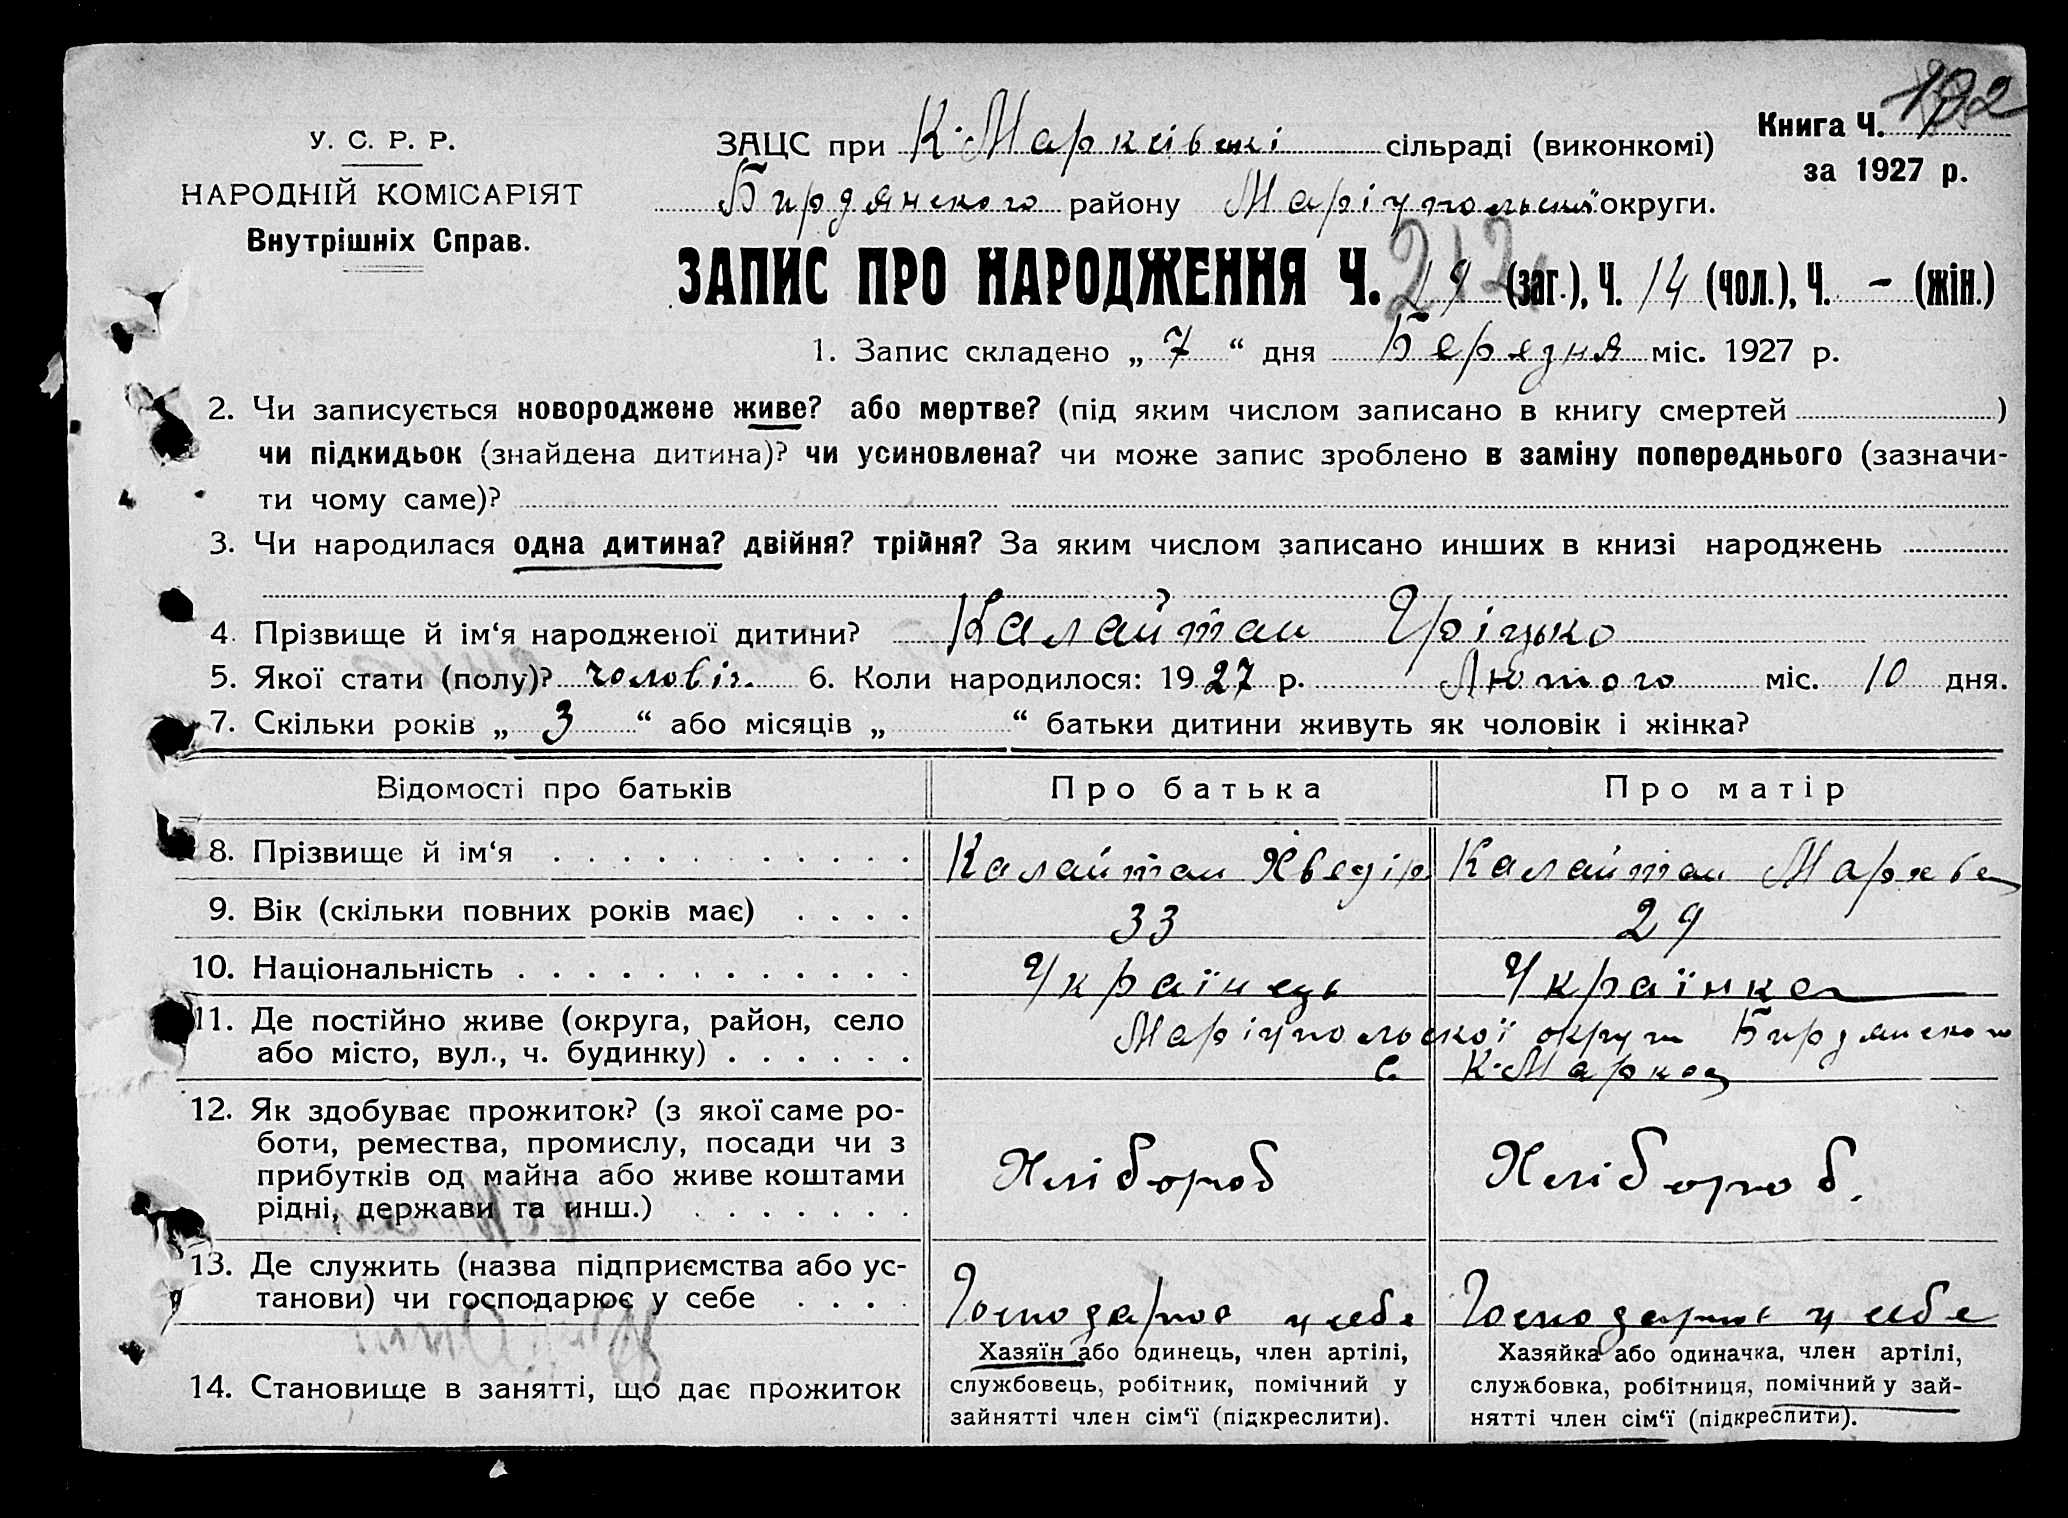 192
У. С. Р. Р.
НАРОДНІЙ КОМІСАРІЯТ
Внутрішніх Справ.
ЗАЦС при К-Марксівські сільраді (виконкомі)
Книга Ч. 1
за 1927 р.
Бирдянского району Маріупольськ. округи.
212
ЗАПИС ПРО НАРОДЖЕННЯ Ч. 29 (заг.), Ч. 14 (чол.), Ч. - (жін.)
1. Запис складено „ 7 “ дня Березня міс. 1927 р.
2. Чи записується новороджене живе? або мертве? (під яким числом записано в книгу смертей )
чи підкидьок (знайдена дитина)? чи усиновлена? чи може запис зроблено в заміну попереднього (зазначи-
ти чому саме)?
3. Чи народилася одна дитина? двійня? трійня? За яким числом записано инших в книзі народжень
4. Прізвище й ім‘я народженої дитини? Калайтан Гріцько
5. Якої стати (полу)? чоловіч. 6. Коли народилося: 1927 р. Лютого міс. 10 дня.
7. Скільки років „ 3 “ або місяців „ “ батьки дитини живуть як чоловік і жінка?
Відомості про батьків Про батька Про матір
8. Прізвище й ім‘я Калайтан Хведір Калайтан Мархва
9. Вік (скільки повних років має) 33 29
10. Національність Українець Українка
11. Де постійно живе (округа, район, село
або місто, вул., ч. будинку)
Маріупольскої округи Бирдянского
с. К-Маркса
12. Як здобуває прожиток? (з якої саме ро-
боти, ремества, промислу, посади чи з
прибутків од майна або живе коштами
рідні, держави та инш.)
Хлібороб Хлібороб.
13. Де служить (назва підприємства або ус-
танови) чи господарює у себе
Господарює у себе Господарює у себе
14. Становище в занятті, що дає прожиток
Хазяїн або одинець, член артілі,
службовець, робітник, помічний у
зайнятті член сім‘ї (підкреслити).
Хазяйка або одиначка, член артілі,
службовка, робітниця, помічний у зай-
нятті член сім‘ї (підкреслити).